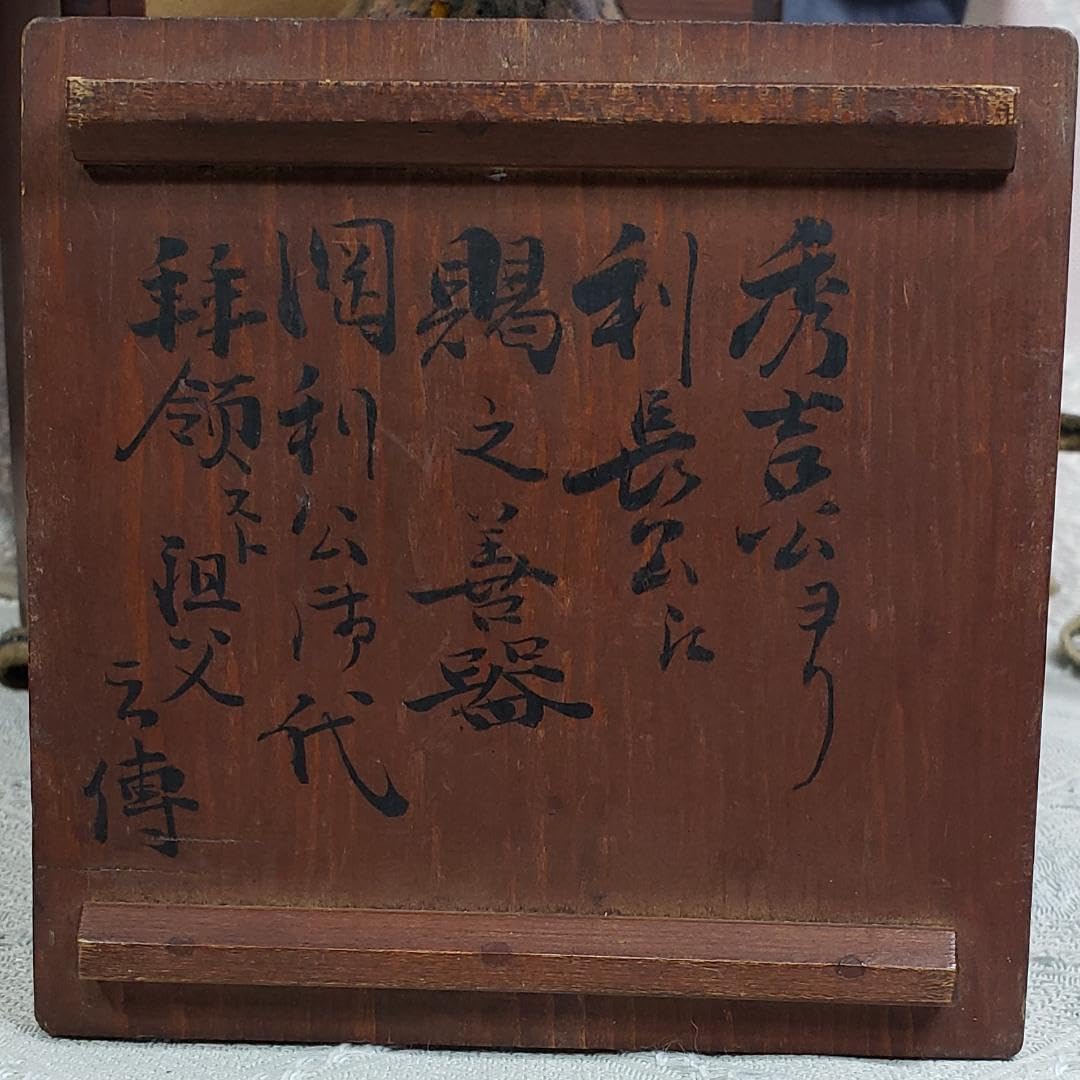 秀吉公ヨリ
利長公江
賜之善器
綱利公御代
拝領スト祖父
云傳